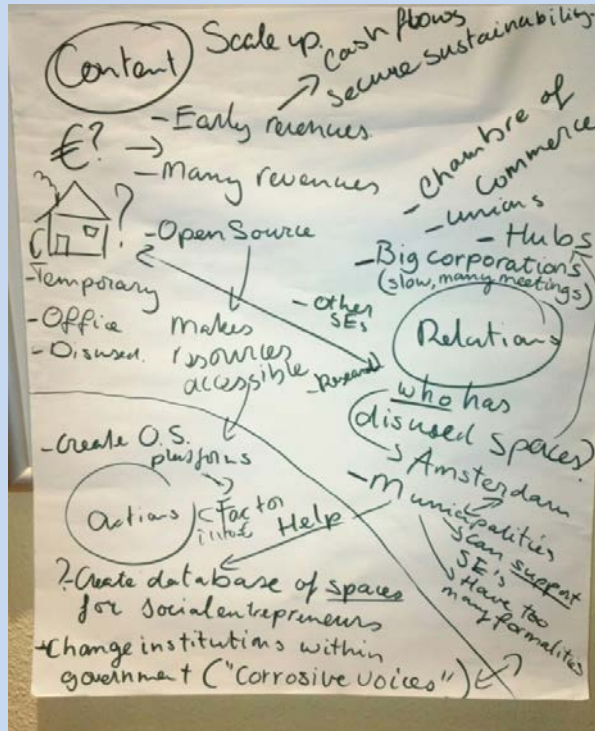 Content
Scale up.
cash flows
secure sustainability.
€?
- Early revenues
- Many revenues
?
- Open Source
- Temporary
- Office
- Disused.
makes
resources
accessible
- Chambre of
Commerce
- unions
- Hubs
- Big corporations
(slow, many meetings)
- Other
SEs
- Research
Relations
who has
disused spaces?
Amsterdam
- Municipalities
scan support
SE's
Have too
many formalities
- Create O.S.
platforms
Actions
Factor
Help
? - Create database of spaces
for social entrepreneurs
Change institutions within
government ("Corrosive voices")